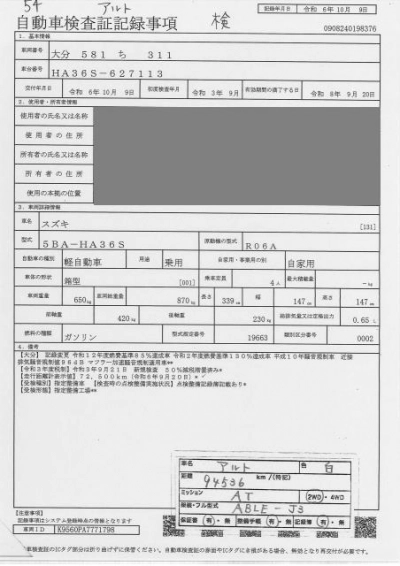 54 アルト
検
自動車検査証記録事項
記録年月日 令和 6年10月 9日
0908240198376
1. 基本情報
車両番号 大分 581 ち 311
車台番号 HA36S-627113
交付年月日 令和 6年10月 9日 初度検査年月 令和 3年 9月 有効期間の満了する日 令和 8年 9月 20日
2. 使用者・所有者情報
使用者の氏名又は名称
使用者の住所
所有者の氏名又は名称
所有者の住所
使用の本拠の位置
3. 車両詳細情報
車名 スズキ [331]
型式 5BA-HA36S 原動機の型式 R06A
自動車の種別 軽自動車 用途 乗用 自家用・事業用の別 自家用
車体の形状 箱型 [001] 乗車定員 4人 最大積載量 -kg
車両重量 650kg 車両総重量 870kg 長さ 339cm 幅 147cm 高さ 147cm
前軸重 420kg 後軸重 230kg 総排気量又は定格出力 0.65 L
燃料の種類 ガソリン 型式指定番号 19663 類別区分番号 0002
4. 備考
【大分】 記録変更 令和12年度燃費基準85%達成車 令和2年度燃費基準130%達成車 平成10年騒音規制車 近接
排気騒音規制値96dB マフラー加速騒音規制適用車**
【令和3年度税制】令和3年9月21日 新規検査 50%減税措置済み*
【走行距離計表示値】72,500km(令和6年9月20日)*
【受検種別】指定整備車 【検査時の点検整備実施状況】点検整備記録簿記載あり*
【受検形態】指定整備工場**
車名 アルト 色 白
距離 94536 km/(特記)
ミッション AT 2WD・4WD
装備・フル型式 ABLE-J3
保証書 有・無 整備手帳 有・無 記録簿 有・無
【注意事項】
記録事項はシステム登録時点の情報となります
車両ID K9560PA7771798
車検査証のICタグ部分は折り曲げずに保管ください。自動車検査証の券面やICタグにき損がある場合、無効となり再交付が必要です。